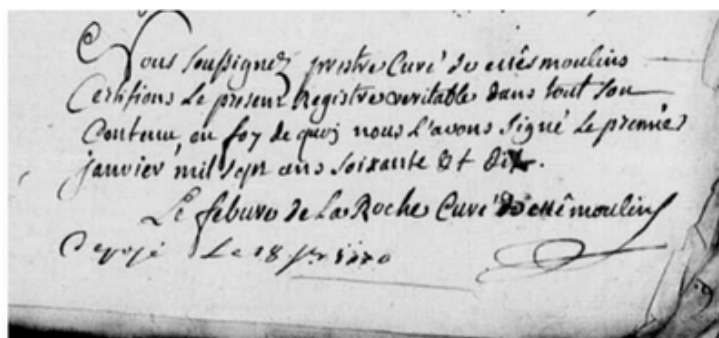 Nous soussignez prestre Curé de mêsmoulins
Certifions Le present Registre veritable dans tout son
Contenu, en foy de quoj nous L'avons signé Le premier
janvier mil sept cens soixante et dix.
Le febure de La Roche Curé de mêmoulins
Deposé Le 18 1770